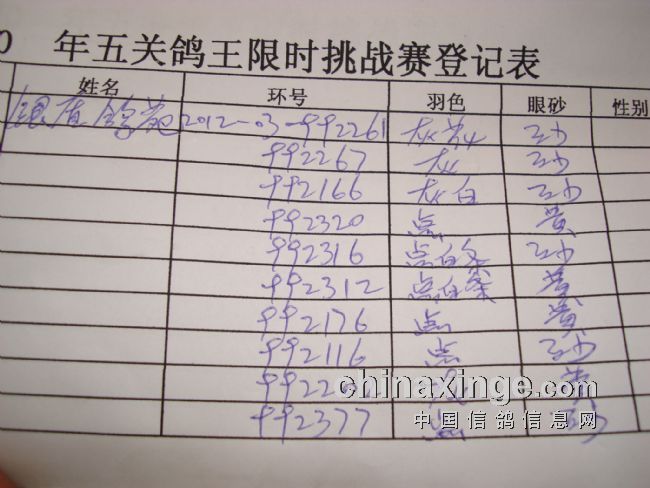 年五关鸽王限时挑战赛登记表
姓名 环号 羽色 眼砂 性别
银盾鸽苑 2012-03-992261 砂
992267 灰 砂
992166 灰白 砂
992320 点 黄
992316 点白条 砂
992312 点白条 黄
992176 点 黄
992116 点 砂
黄
992377 点 砂
chinaxinge.com
中国信鸽信息网